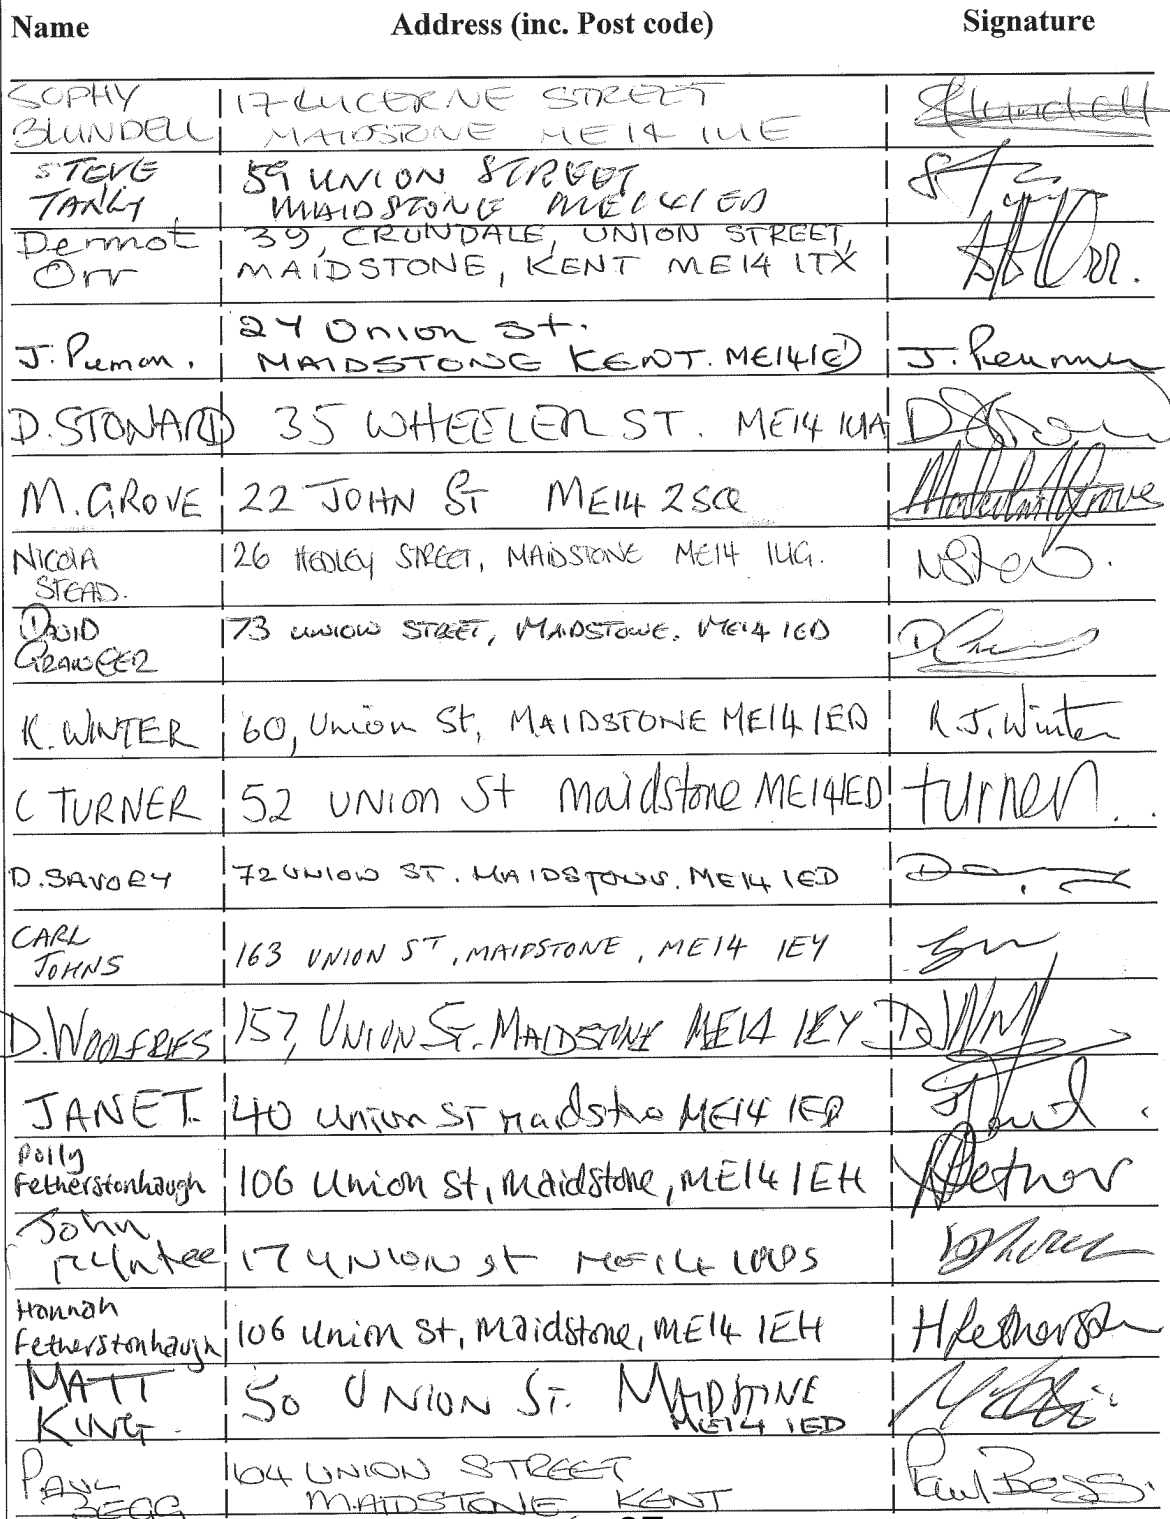 Name Address (inc. Post code) Signature
SOPHY 17 LUCERNE STREET
BLUNDELL MAIDSTONE ME14 1UE
STEVE 59 UNION STREET
MAIDSTONE ME14 1ED
Dermot 39, CRUNDALE, UNION STREET,
Orr MAIDSTONE, KENT ME14 1TX
Union St.
J. MAIDSTONE KENT. ME14 1ED J.
D. STONARD 35 WHEELER ST. ME14 1UA
M. GROVE 22 JOHN St ME14 2SQ
NICOLA 26 HEDLEY STREET, MAIDSTONE ME14 1UG.
STEAD.
DAVID 73 UNION STREET, MAIDSTONE. ME14 1ED
GRAINGER
K. WINTER 60, Union St, MAIDSTONE ME14 1ED K.J. Winter
C TURNER 52 UNION St Maidstone ME14 1ED turner
D. SAVORY 72 UNION ST. MAIDSTONE. ME14 1ED
CARL 163 UNION ST, MAIDSTONE, ME14 1EY
JOHNS
D. WOOLFRIES 157, UNION ST. MAIDSTONE ME14 1EY
JANET. 40 Union ST ME14 1ED
Polly
Fetherstonhaugh 106 Union St, Maidstone, ME14 1EH
John 17 UNION St ME14
Hannah
Fetherstonhaugh 106 Union St, Maidstone, ME14 1EH
MATT 50 UNION ST. MAIDSTONE
KING ME14 1ED
PAUL 64 UNION STREET Paul Begg.
BEGG MAIDSTONE KENT